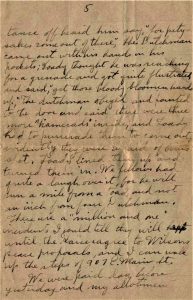 5
came off heard him say, "for pity
sakes come out of there". The Dutchman
came out with his hands in his
pockets. Coady thought he was reaching
for a grenade and got quite flustrated
and said, "get those bloody hands
up," the dutchman obeyed and pointed
to the door and said there were three
more "Kamerads" in there and Coady
had to persuade them to come out
evidently they were afraid of being
shot. Coady lined them up and
turned them in. We fellows had
quite a laugh over it for he will
run a mile from a cow and not
an inch from one Dutchman.
There are a "million and one"
incidents I could tell they will
until the Kaiser agree to Wilsons
peace proposals and I can walk
up the steps of 907 E. 
We were paid day before
yesterday and my allotment